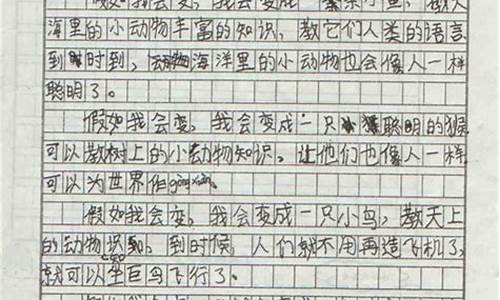 假如我会变，我会变成一条小鱼，教大
海里的小动物丰富的知识，教它们人类的语言
到时到，动物海洋里的小动物也会像人一样
聪明了。
假如我会变，我会变成一只聪明的猴
可以教树上的小动物知识，让他们也像人一样
可以为世界作gòng xiàn。
假如我会变，我会变成一只小鸟，教天上
的动物识知，到时候，人们就不用再造飞机了，
就可以坐巨鸟飞行了。